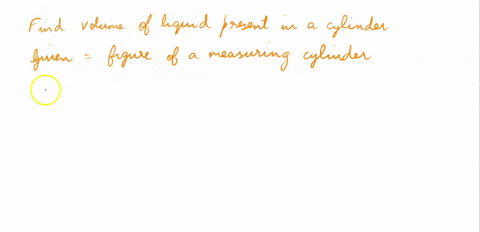 Find volume of liquid present in a cylinder
given = figure of a measuring cylinder